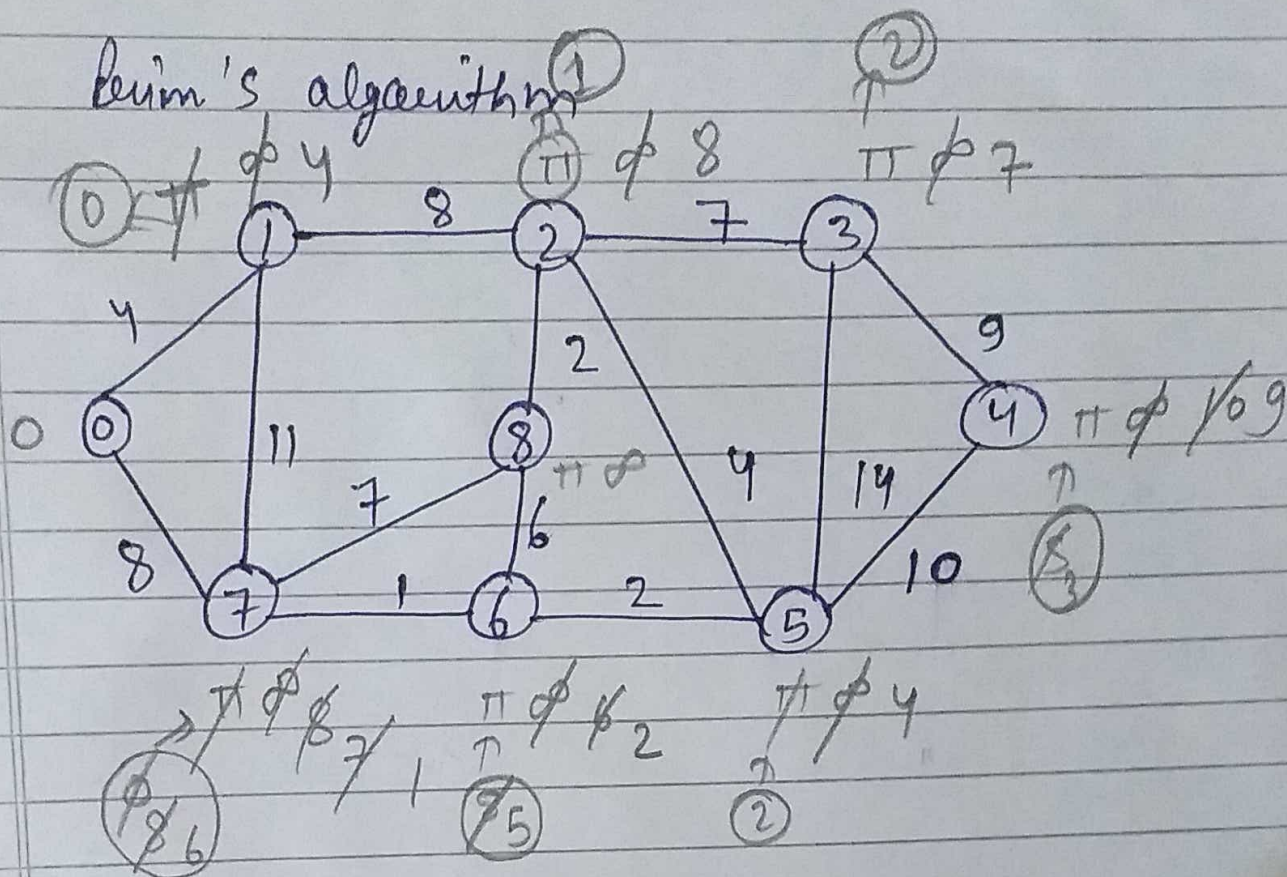 Prim's algorithm 1 2
0 π ∞ 4 π ∞ 8 π ∞ 7
1 8 2 7 3
4 2 9
0 0 11 8 π ∞ 4 14 4 π ∞ 10 9
7 6
8 10 5 3
7 1 6 2 5
π ∞ 8 7 1 π ∞ 6 2 π ∞ 4
0 8 6 8 5 2